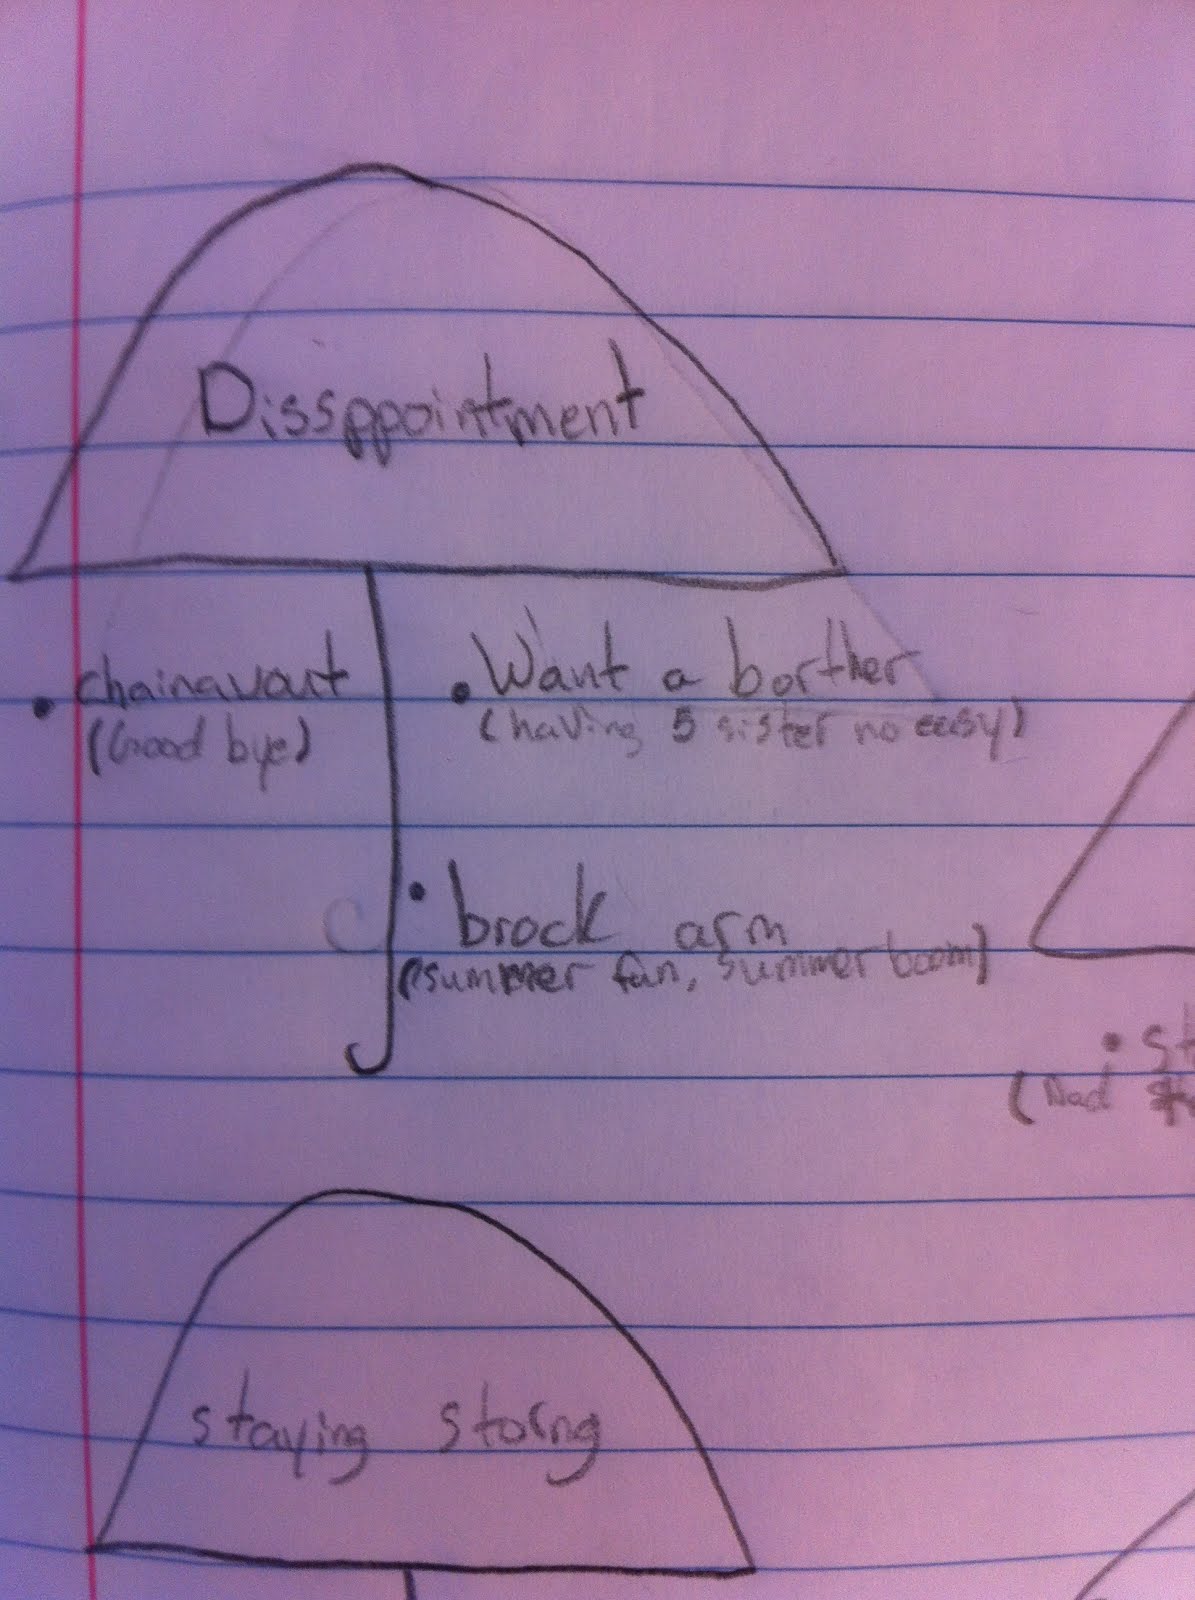 Dissppointment
• chainavout
(Good bye)
• Want a borther
(having 5 sister no easy)
• brock arm
(summer fun, summer boom)
• st
(Dad
staying storng